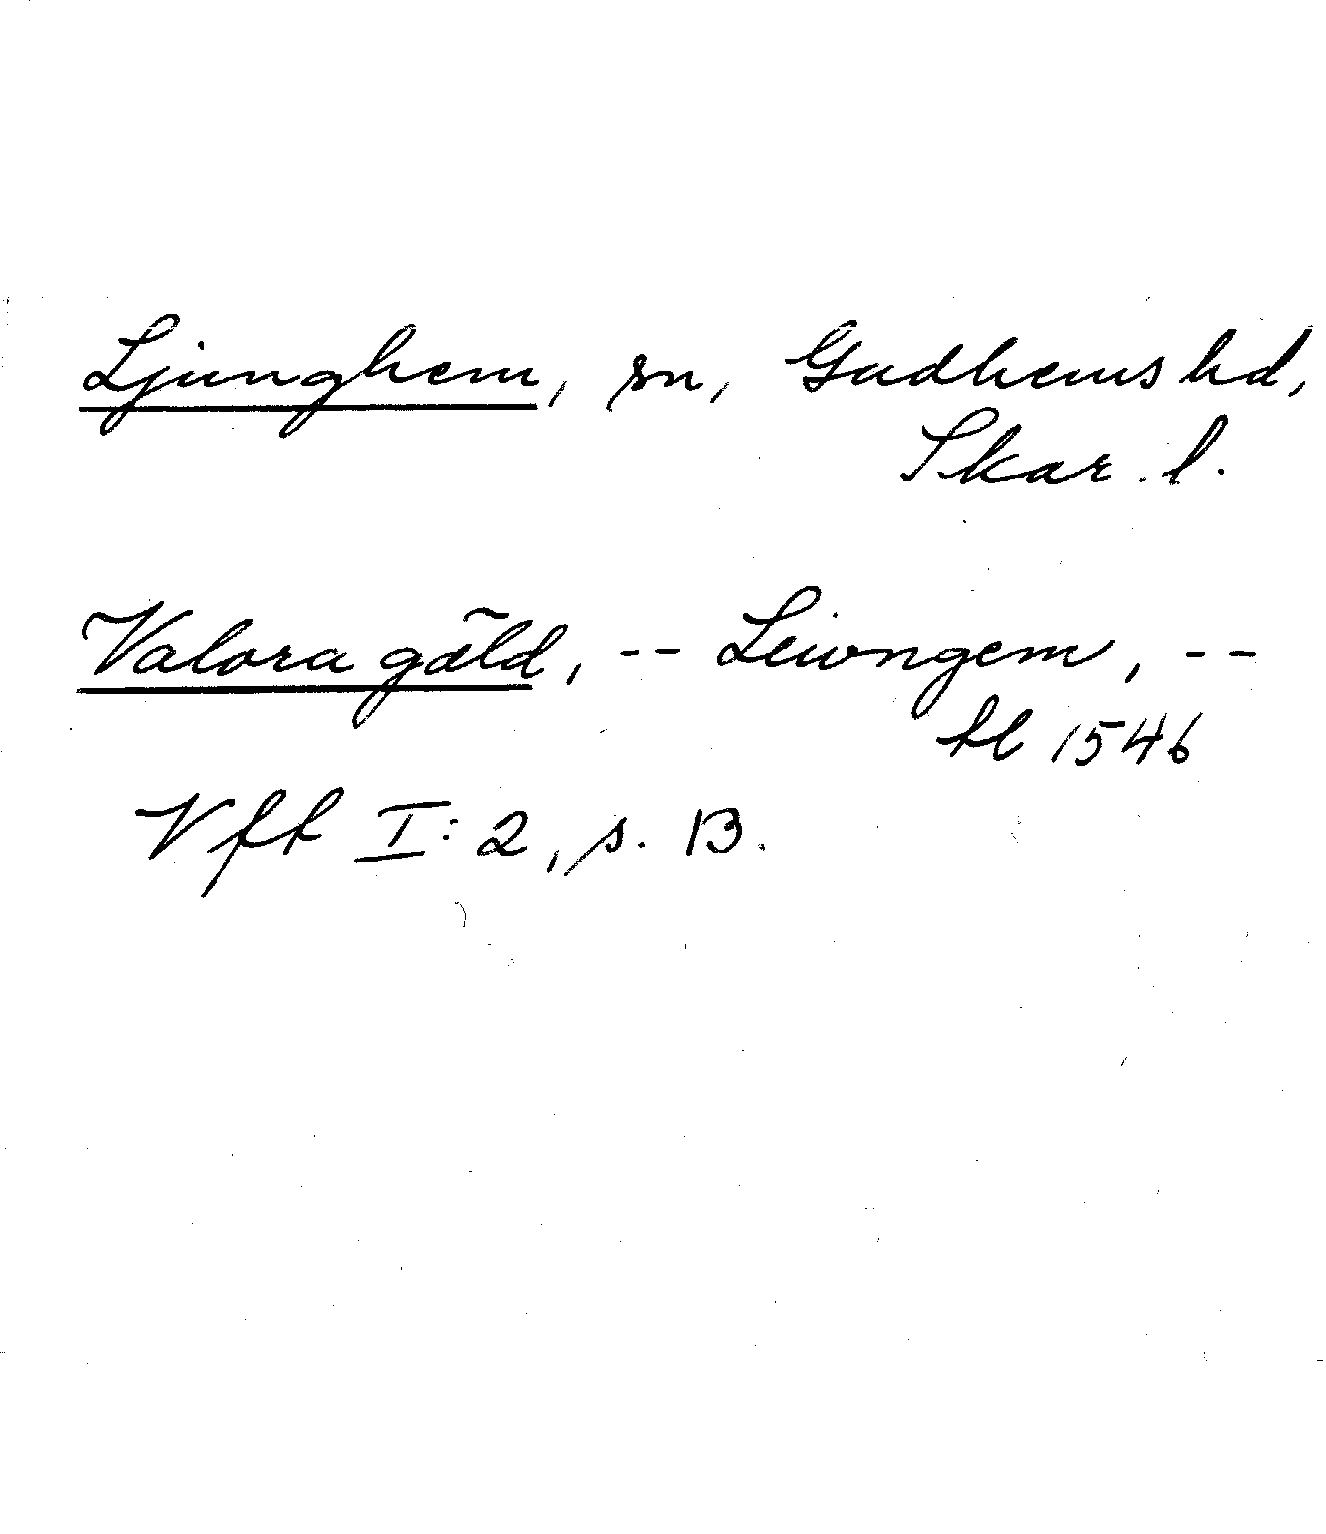 Ljunghem, sn, Gudhems hd,
Skar. l.
Valora gäld, -- Leiongem, --
tl 1546
Vft I:2, s. 13.